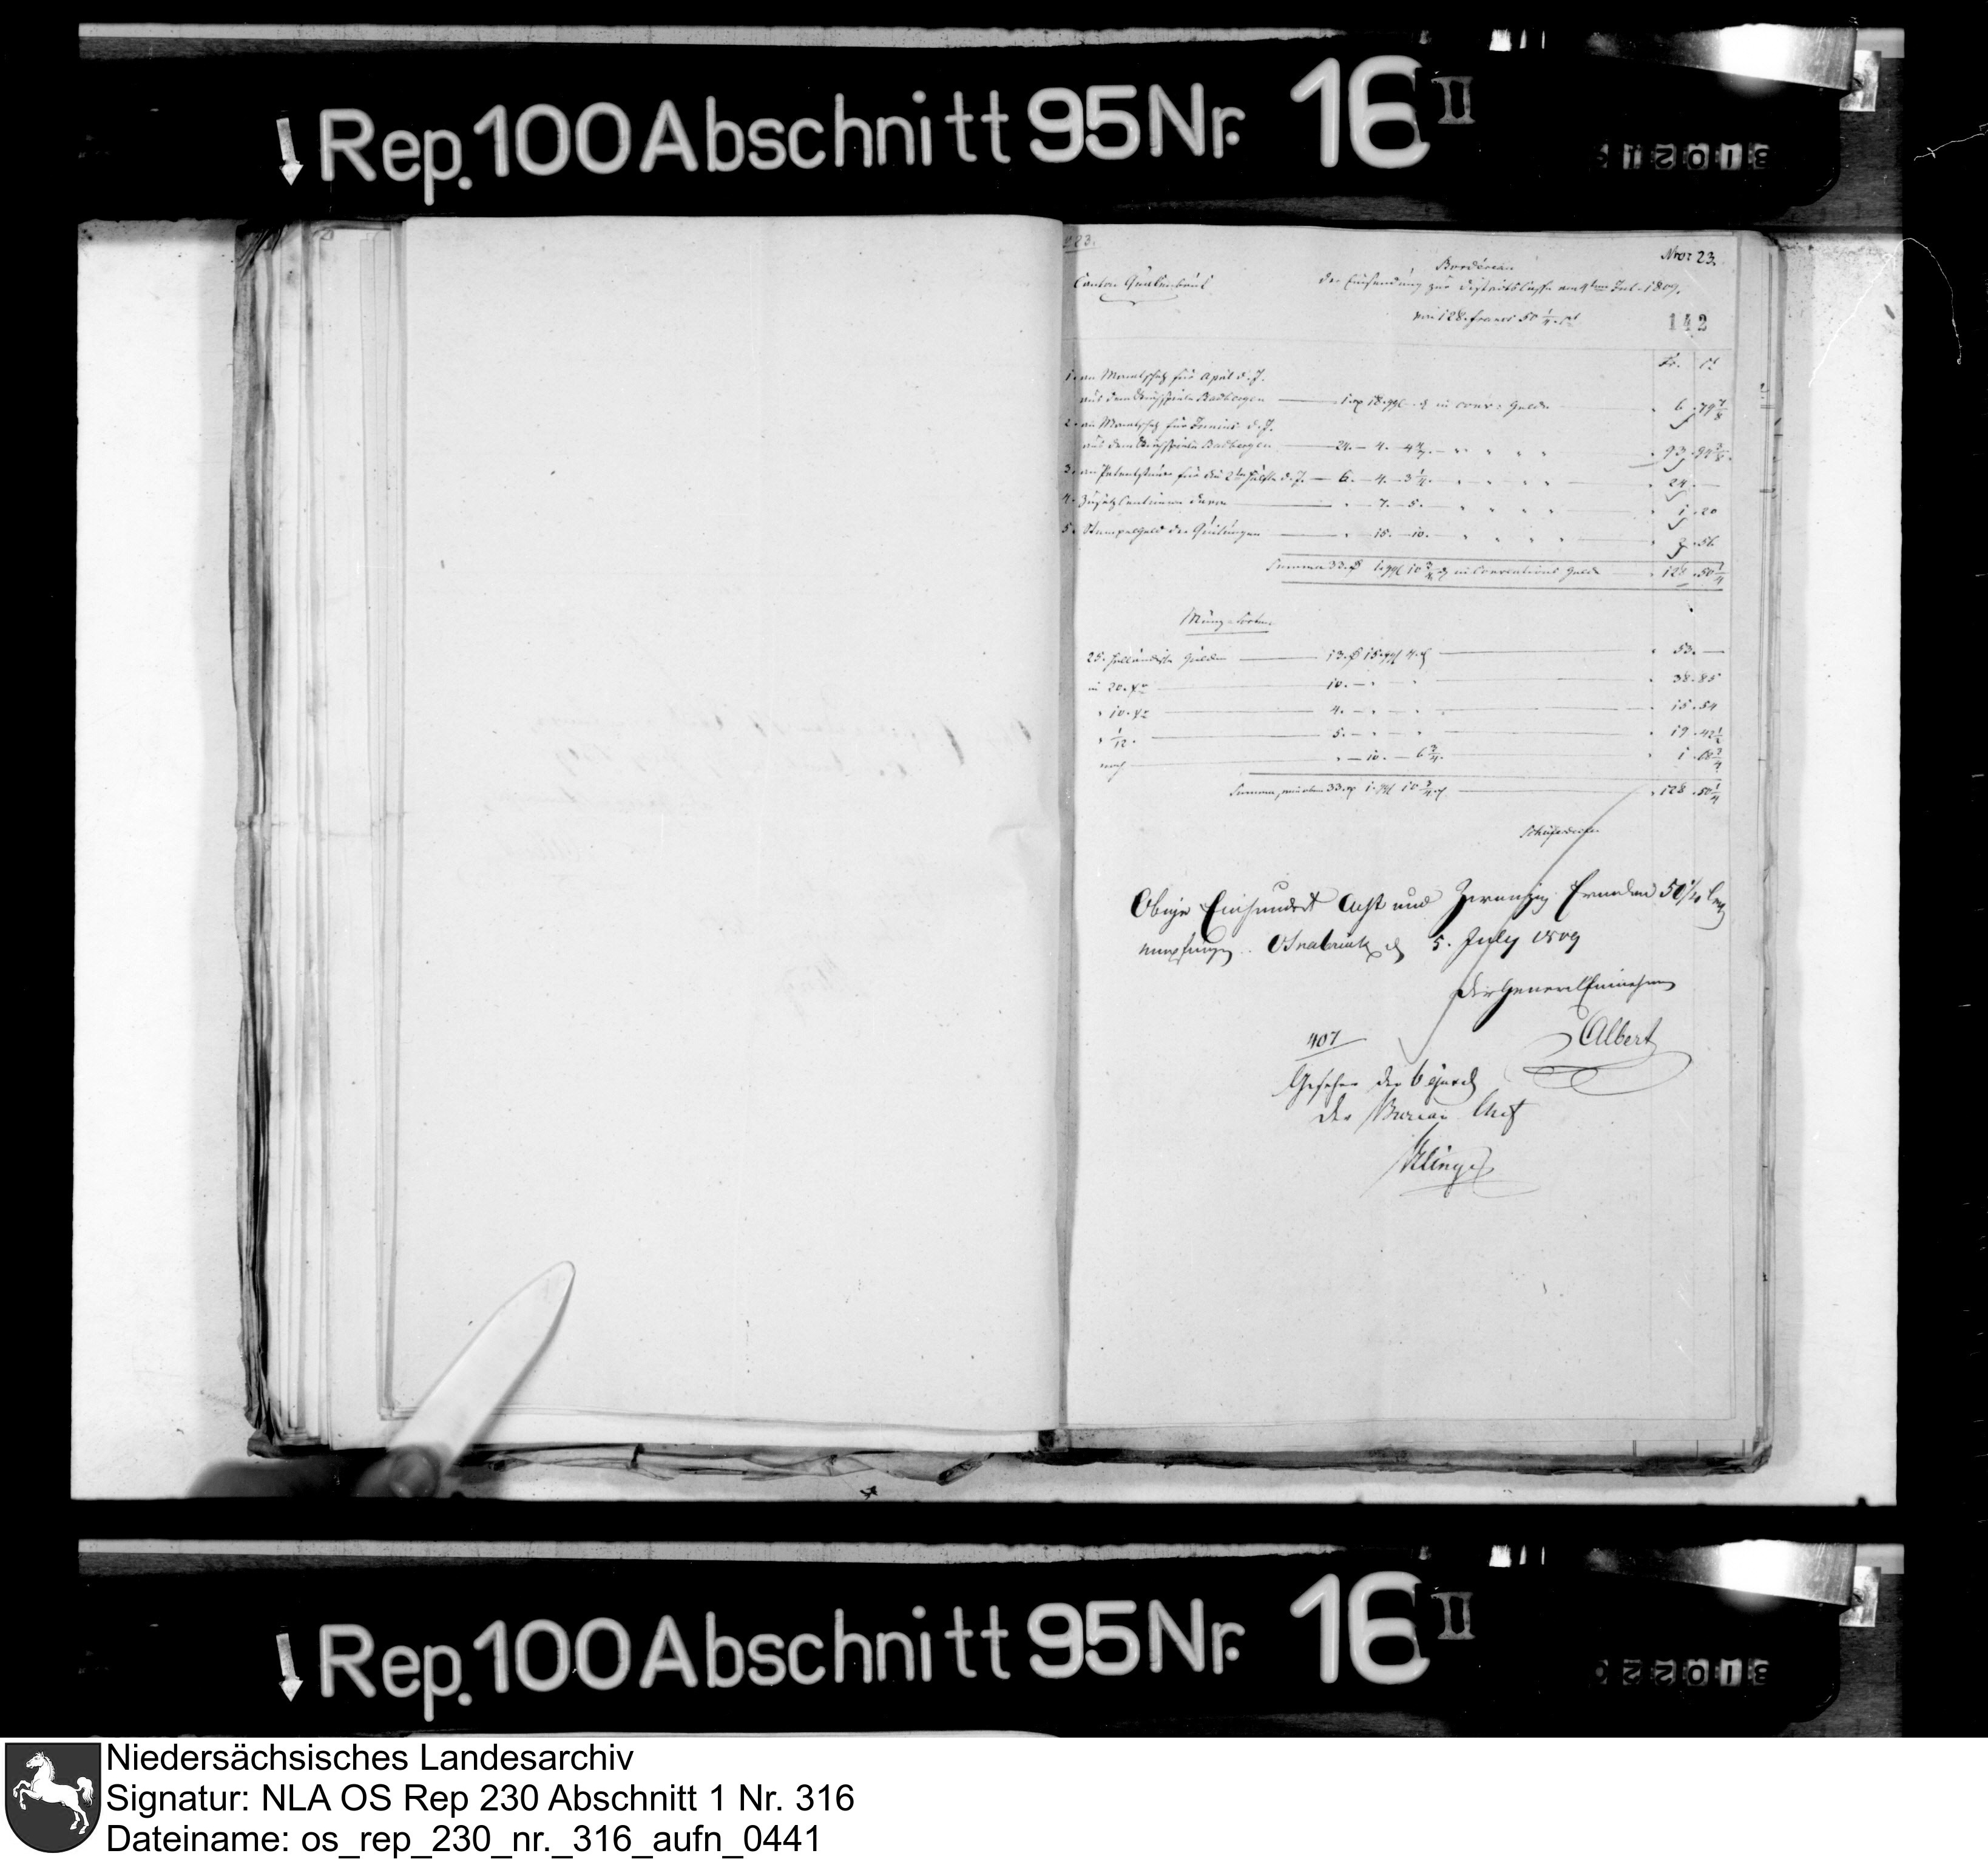 Rep. 100 Abschnitt 95 Nr. 16 II
223.
Nro: 23.
Bordereau
Canton Quakenbrück
der Einsendung zur Districtscasse vom 4ten Jul. 1809.
von 128. francs 50 1/4. Ct
142
Fr. Ct
1. an Monatschatz für April d. J.
aus dem Kirchspiele Badbergen 1. 18. ggl in conv: Gelde 6. 79 7/8
2. an Monatschatz für Junius d. J.
aus dem Kirchspiele Badbergen 24. 4. 93. 94
3. an Patentsteuer für die 2te Hälfte d. J. 6. 4. 3 1/4. 24. —
4. Zusatz Centimen davon 7. 5. 1. 20
5. Stempelgeld der Quitungen 15. 10. 2. 56
Summa 33. 1. ggl 10 3/4 in Conventions Gelde 128. 50 1/4
Münz-Sorten
25. holländische Gulden 13. 15. ggl 4. 53. —
in 20. Xr 10. 38. 85
" 10. Xr 4. 15. 54
" 1/12. 5. 19. 42 1/2
noch 10. 6 3/4. 1. 68 3/4
Summa, wie oben 33. 1. ggl 10 3/4 128. 50 1/4
Obige Einhundert Acht und Zwanzig Franken 50 1/4 Cent
empfangen. Osnabrück d 5. July 1809
Der General Einnehmer
Albert
407
Gesehen den 6 ejusd
Der Bureau Chef
Rep. 100 Abschnitt 95 Nr. 16 II
Niedersächsisches Landesarchiv
Signatur: NLA OS Rep 230 Abschnitt 1 Nr. 316
Dateiname: os_rep_230_nr._316_aufn_0441